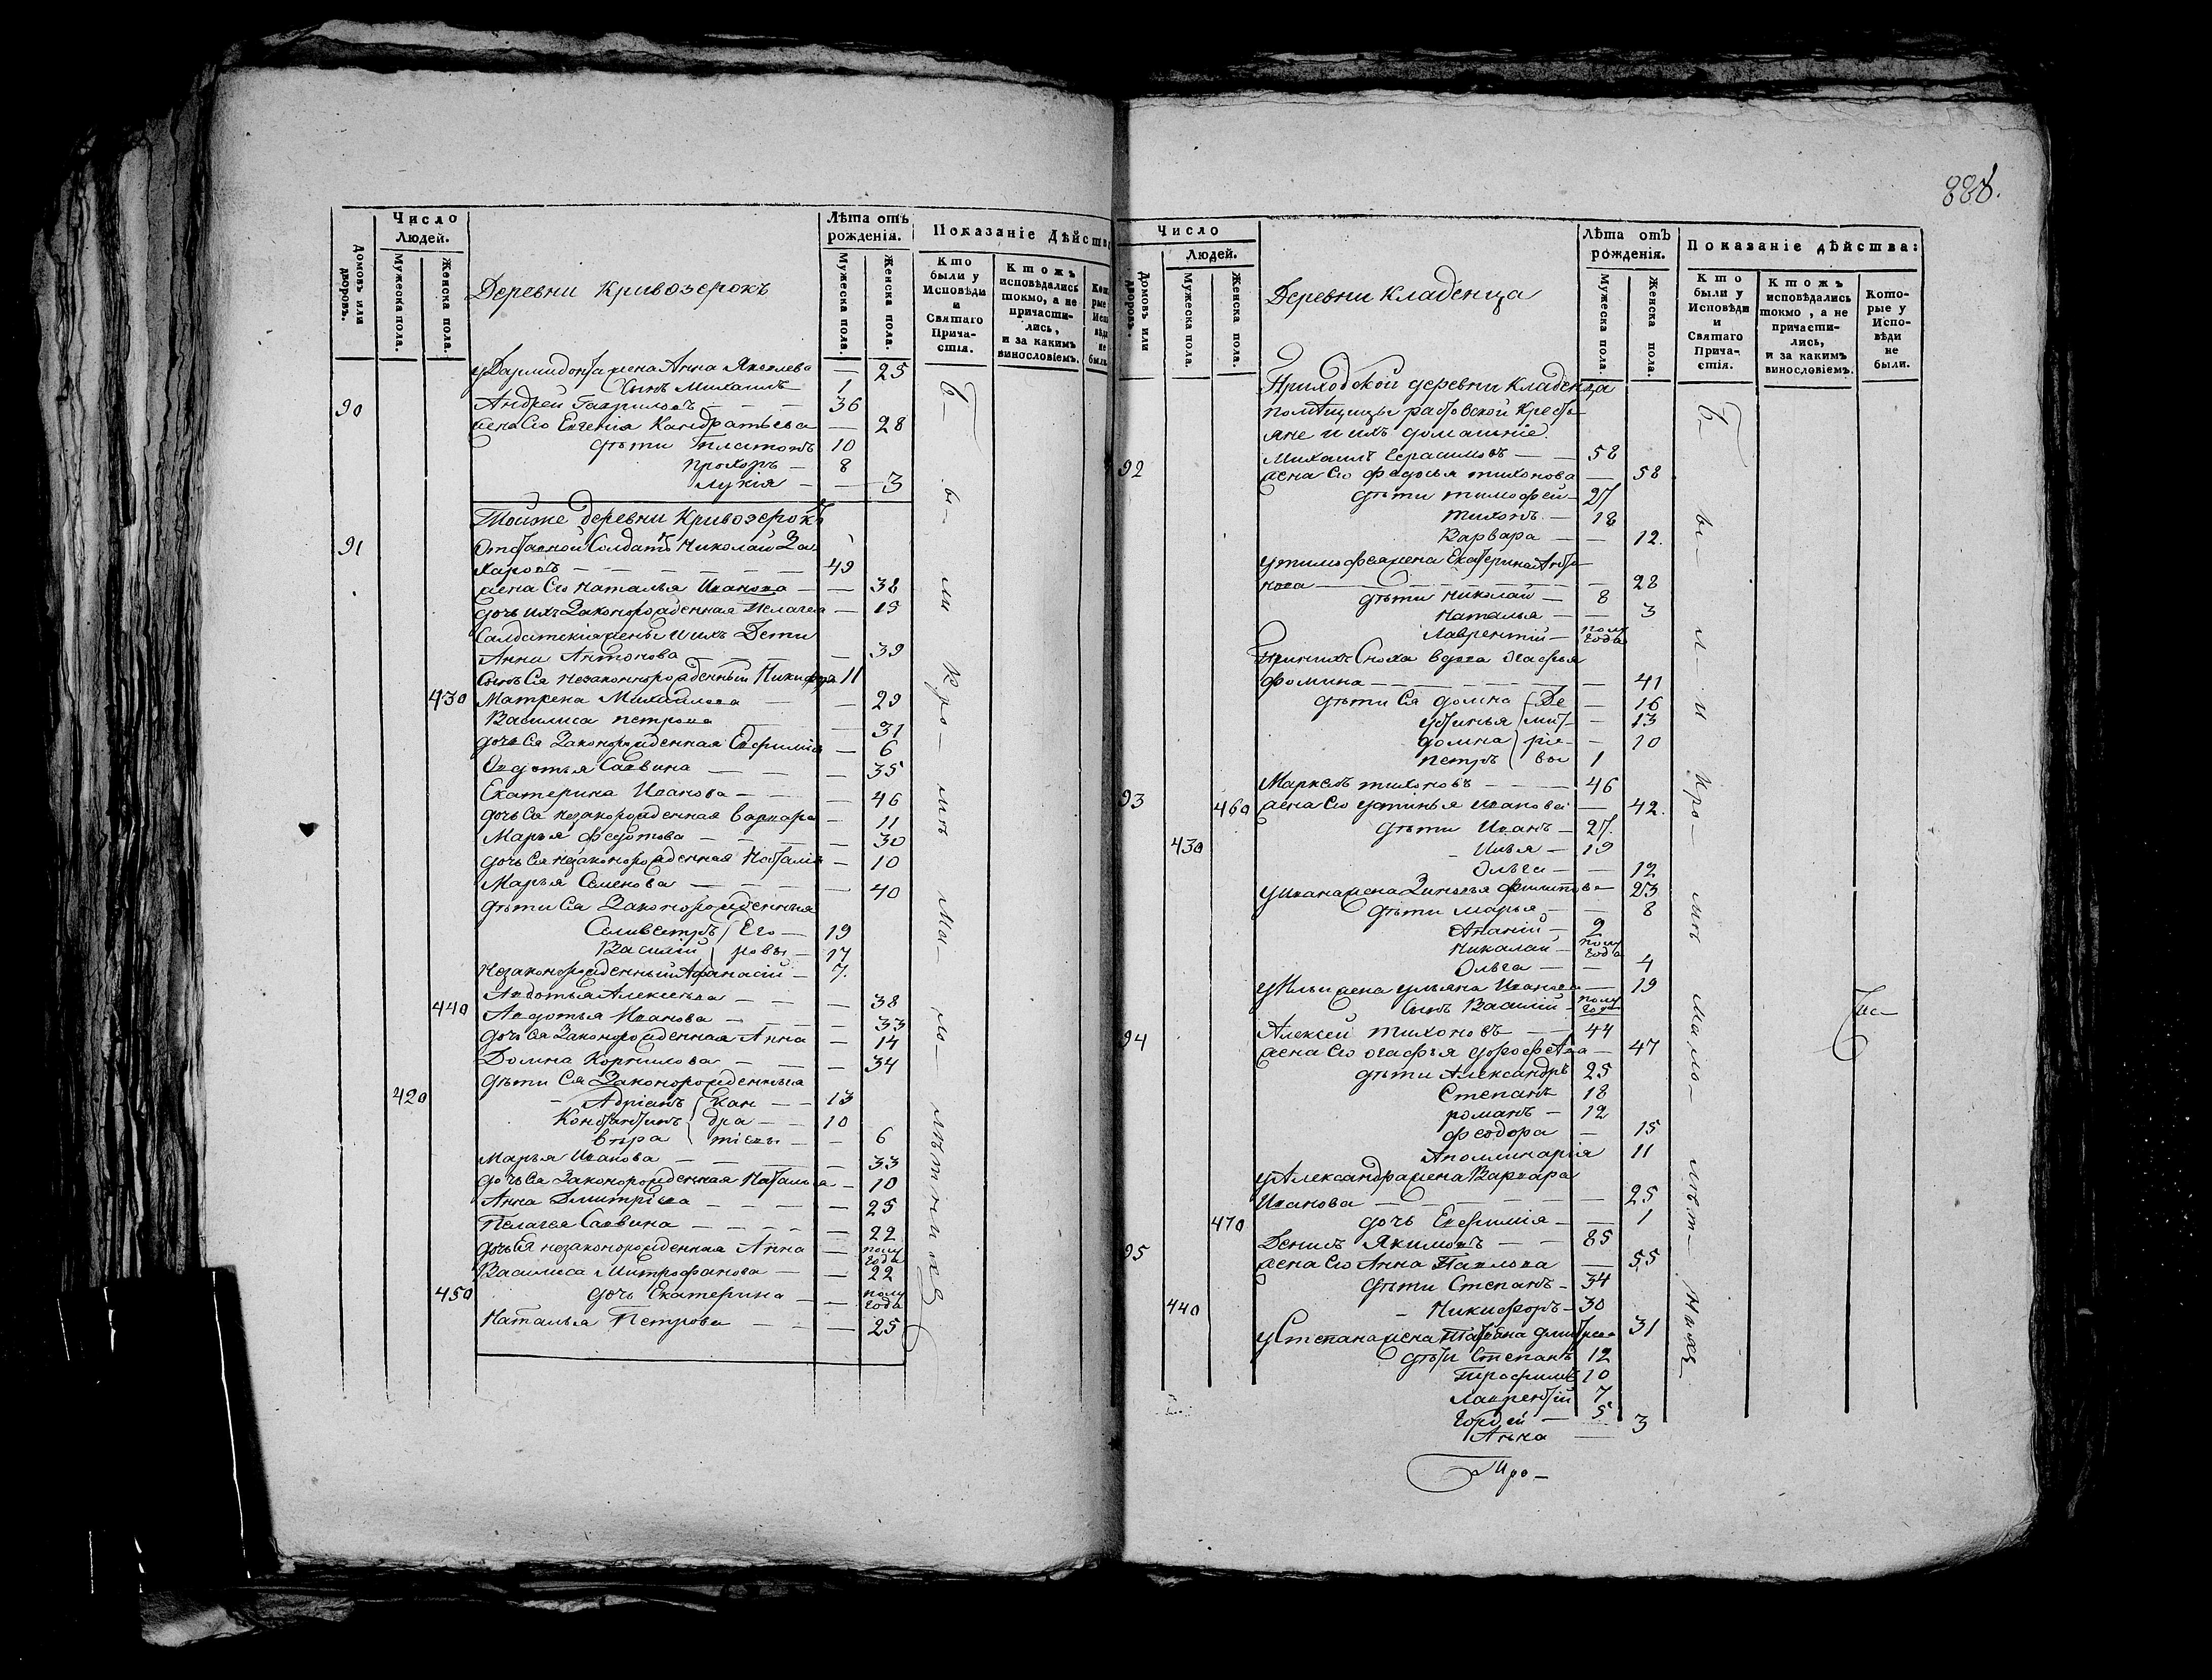 Число
Людей.
Домовъ или дворовъ.
Мужеска пола.
Женска пола.
Деревни Кривозерокъ
Лѣта отъ рожденія.
Мужеска пола.
Женска пола.
Показаніе Дѣйства
Кто были у Исповѣди и Святаго Причастія.
Ктожъ исповѣдались токмо, а не причастились, и за какимъ винословіемъ.
жена Анна Яковлева — 25
Сынъ Михаилъ — 1
90 Андрей Гавриловъ — 36
жена Его Евгенія Кандратьева — 28
дѣти Платонъ 10
Прохоръ — 8
Лукія — 3
Тойже деревни Кривозерокъ
91 Отставной Солдатъ Николай За
харовъ — 49
жена Его Наталья Иванова — 38
дочь ихъ Законорожденная Пелагея — 15
Салдатскія жены и ихъ Дети
Анна Антонова — 39
Сынъ Ея Незаконнорожденный Никифоръ 11
430 Матрена Михайлова — 29
Василиса Петрова — 31
дочь Ея Законорожденная Евфимія — 6
Овдотья Саввина — 35
Екатерина Иванова — 46
дочь Ея незаконорожденная Варвара — 11
Марья Федотова — 30
дочь Ея незаконорожденная Наталія — 10
Марья Семенова — 40
дѣти Ея Законорожденныя
Селивестръ Его — 19
Василій ровы — 17
Незаконорожденный Афанасій — 7.
Авдотья Алексеева — 38
440 Авдотья Иванова — 33
дочь Ея Законорожденная Анна — 14
Домна Корнилова — 34
дѣти Ея Законорожденныя
420 Адріанъ Кан — 13
Константинъ дра — 10
Вѣра тіевы — 6
Марья Иванова — 33
дочь Ея Законорожденная Наталья — 10
Анна Дмитріева — 25
Пелагея Саввина — 22
дочь Ея незаконорожденная Анна — полу года
Василиса Митрофанова — 22
450 дочь Екатерина — полу года
Наталья Петрова — 25
888.
Число
Людей.
Домовъ или дворовъ.
Мужеска пола.
Женска пола.
Деревни Кладенца
Лѣта отъ рожденія.
Мужеска пола.
Женска пола.
Показаніе дѣйства:
Кто были у Исповѣди и Святаго Причастія.
Ктожъ исповѣдались токмо, а не причастились, и за какимъ винословіемъ.
Которые у Исповѣди не были.
Приходской деревни Кладенца
помѣщицы Кресть
яне и ихъ домашніе.
92 Михаилъ Герасимовъ — 58
жена Его Федосья Тихонова — 58
дѣти Тимофей — 27
Тихонъ — 18
Варвара — 12.
у Тимофея жена Екатерина Анто
нова — 28
дѣти Николай — 8
Наталья — 3
Лаврентій — полу года
при нихъ Сноха вдова Агафья
Фомина — 41
дѣти Ея Домна Де — 16
Устинья мит — 13
Домна ріе — 10
Петръ вы 1
93 Маркелъ Тихоновъ — 46
460 жена Его Устинья Иванова — 42.
дѣти Иванъ — 27.
430 Илья — 19
Ольга — 12
у Ивана жена Зиновья Филипова — 23
дѣти Марья — 8
Ананій — 2
Николай — полу года
Ольга — 4
у Ильи жена Ульяна Иванова — 19
Сынъ Василій — полу года
94 Алексей Тихоновъ — 44
жена Его Агафья Дорофеева — 47
дѣти Александръ 25
Степанъ 18
Романъ — 12
Феодора — 15
Аполлинарія 11
у Александра жена Варвара
Иванова — 25
470 дочь Евфимія — 1
95 Денисъ Якимовъ — 85
жена Его Анна Павлова — 55
дѣти Степанъ — 34
440 Никифоръ — 30
у Степана жена Татьяна Дмитрева 31
дѣти Степанъ 12
Трофимъ 10
Лаврентій 7
Гордей — 5
Анна — 3
Про—